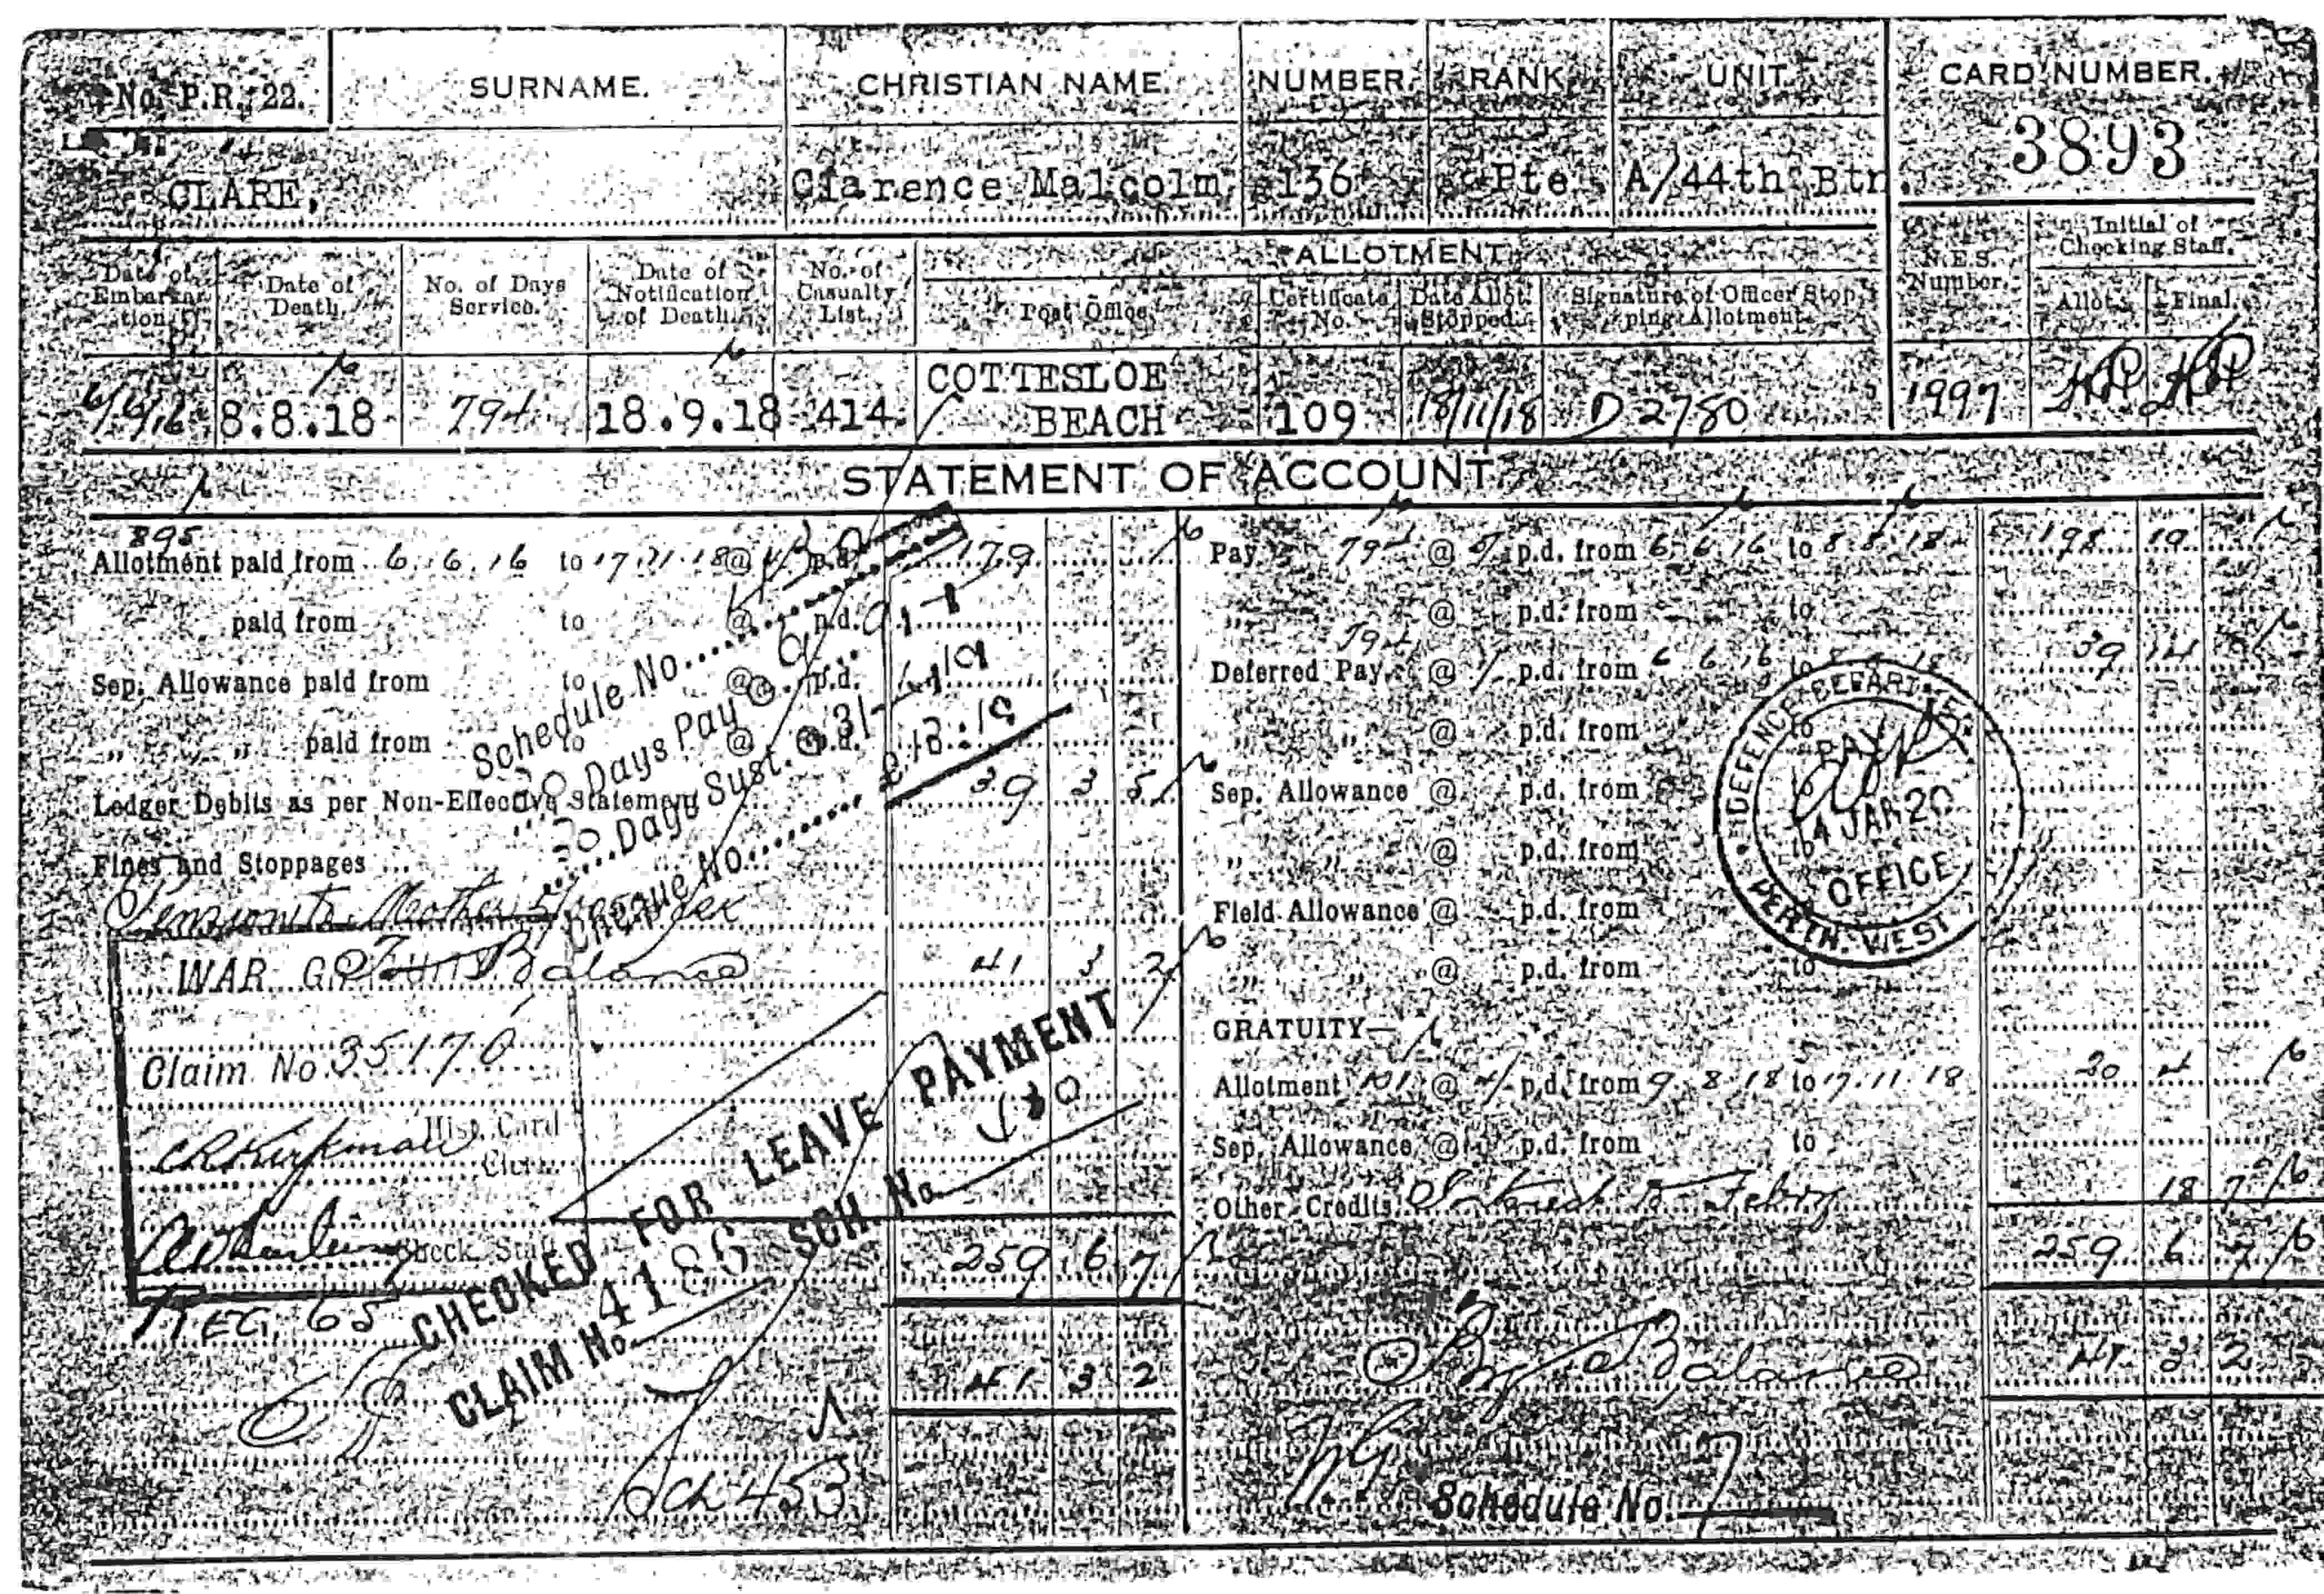 No. P.R. 22.
SURNAME.
CHRISTIAN NAME.
NUMBER.
RANK
UNIT.
CARD NUMBER.
3893
CLARE,
Clarence Malcolm
136
Pte
A/44th Btn
Date of Embarkation
Date of Death.
No. of Days Service.
Date of Notification of Death.
No. of Casualty List.
ALLOTMENT
Post Office.
Certificate No.
Date Allot. Stopped.
Signature of Officer Stopping Allotment.
N.E.S. Number.
Initial of Checking Staff.
Allot.
Final.
6/6/16
8.8.18
794
18.9.18
414
COTTESLOE BEACH
109
18/11/18
D 2780
1997
STATEMENT OF ACCOUNT
895
Allotment paid from 6.6.16 to 17.11.18 @ 4/ p.d. 179
paid from to @ p.d.
Sep. Allowance paid from to @ p.d.
" " paid from to @ p.d.
Ledger Debits as per Non-Effective Statement 39 3 5
Fines and Stoppages
Pension to Mother
WAR
Balance 41 3 2
Claim No. 35170
Hist. Card
Clerk
Check. Staff
REG. 65
259 6 7
41 3 2
Sch 453
Schedule No.
Days Pay @
Days Sust. @
Cheque No.
CHECKED FOR LEAVE PAYMENT
CLAIM No. 4186 SCH. No.
Pay 794 @ 5/ p.d. from 6.6.16 to 8.8.18 198 10
@ p.d. from to
794
Deferred Pay @ 1/- p.d. from 6 6 16 to 8.8.18 39 14
" @ p.d. from to
Sep. Allowance @ p.d. from to
" " @ p.d. from to
Field Allowance @ p.d. from
" " @ p.d. from to
DEFENCE DEPARTMENT
PAY
14 JAN 20
OFFICE
PERTH. WEST
GRATUITY—
Allotment 101 @ 4/- p.d. from 9.8.18 to 17.11.18 20 4
Sep. Allowance @ p.d. from to
Other Credits 18 7
259 6 7
By Balance 41 3 2
WG
Schedule No. 7